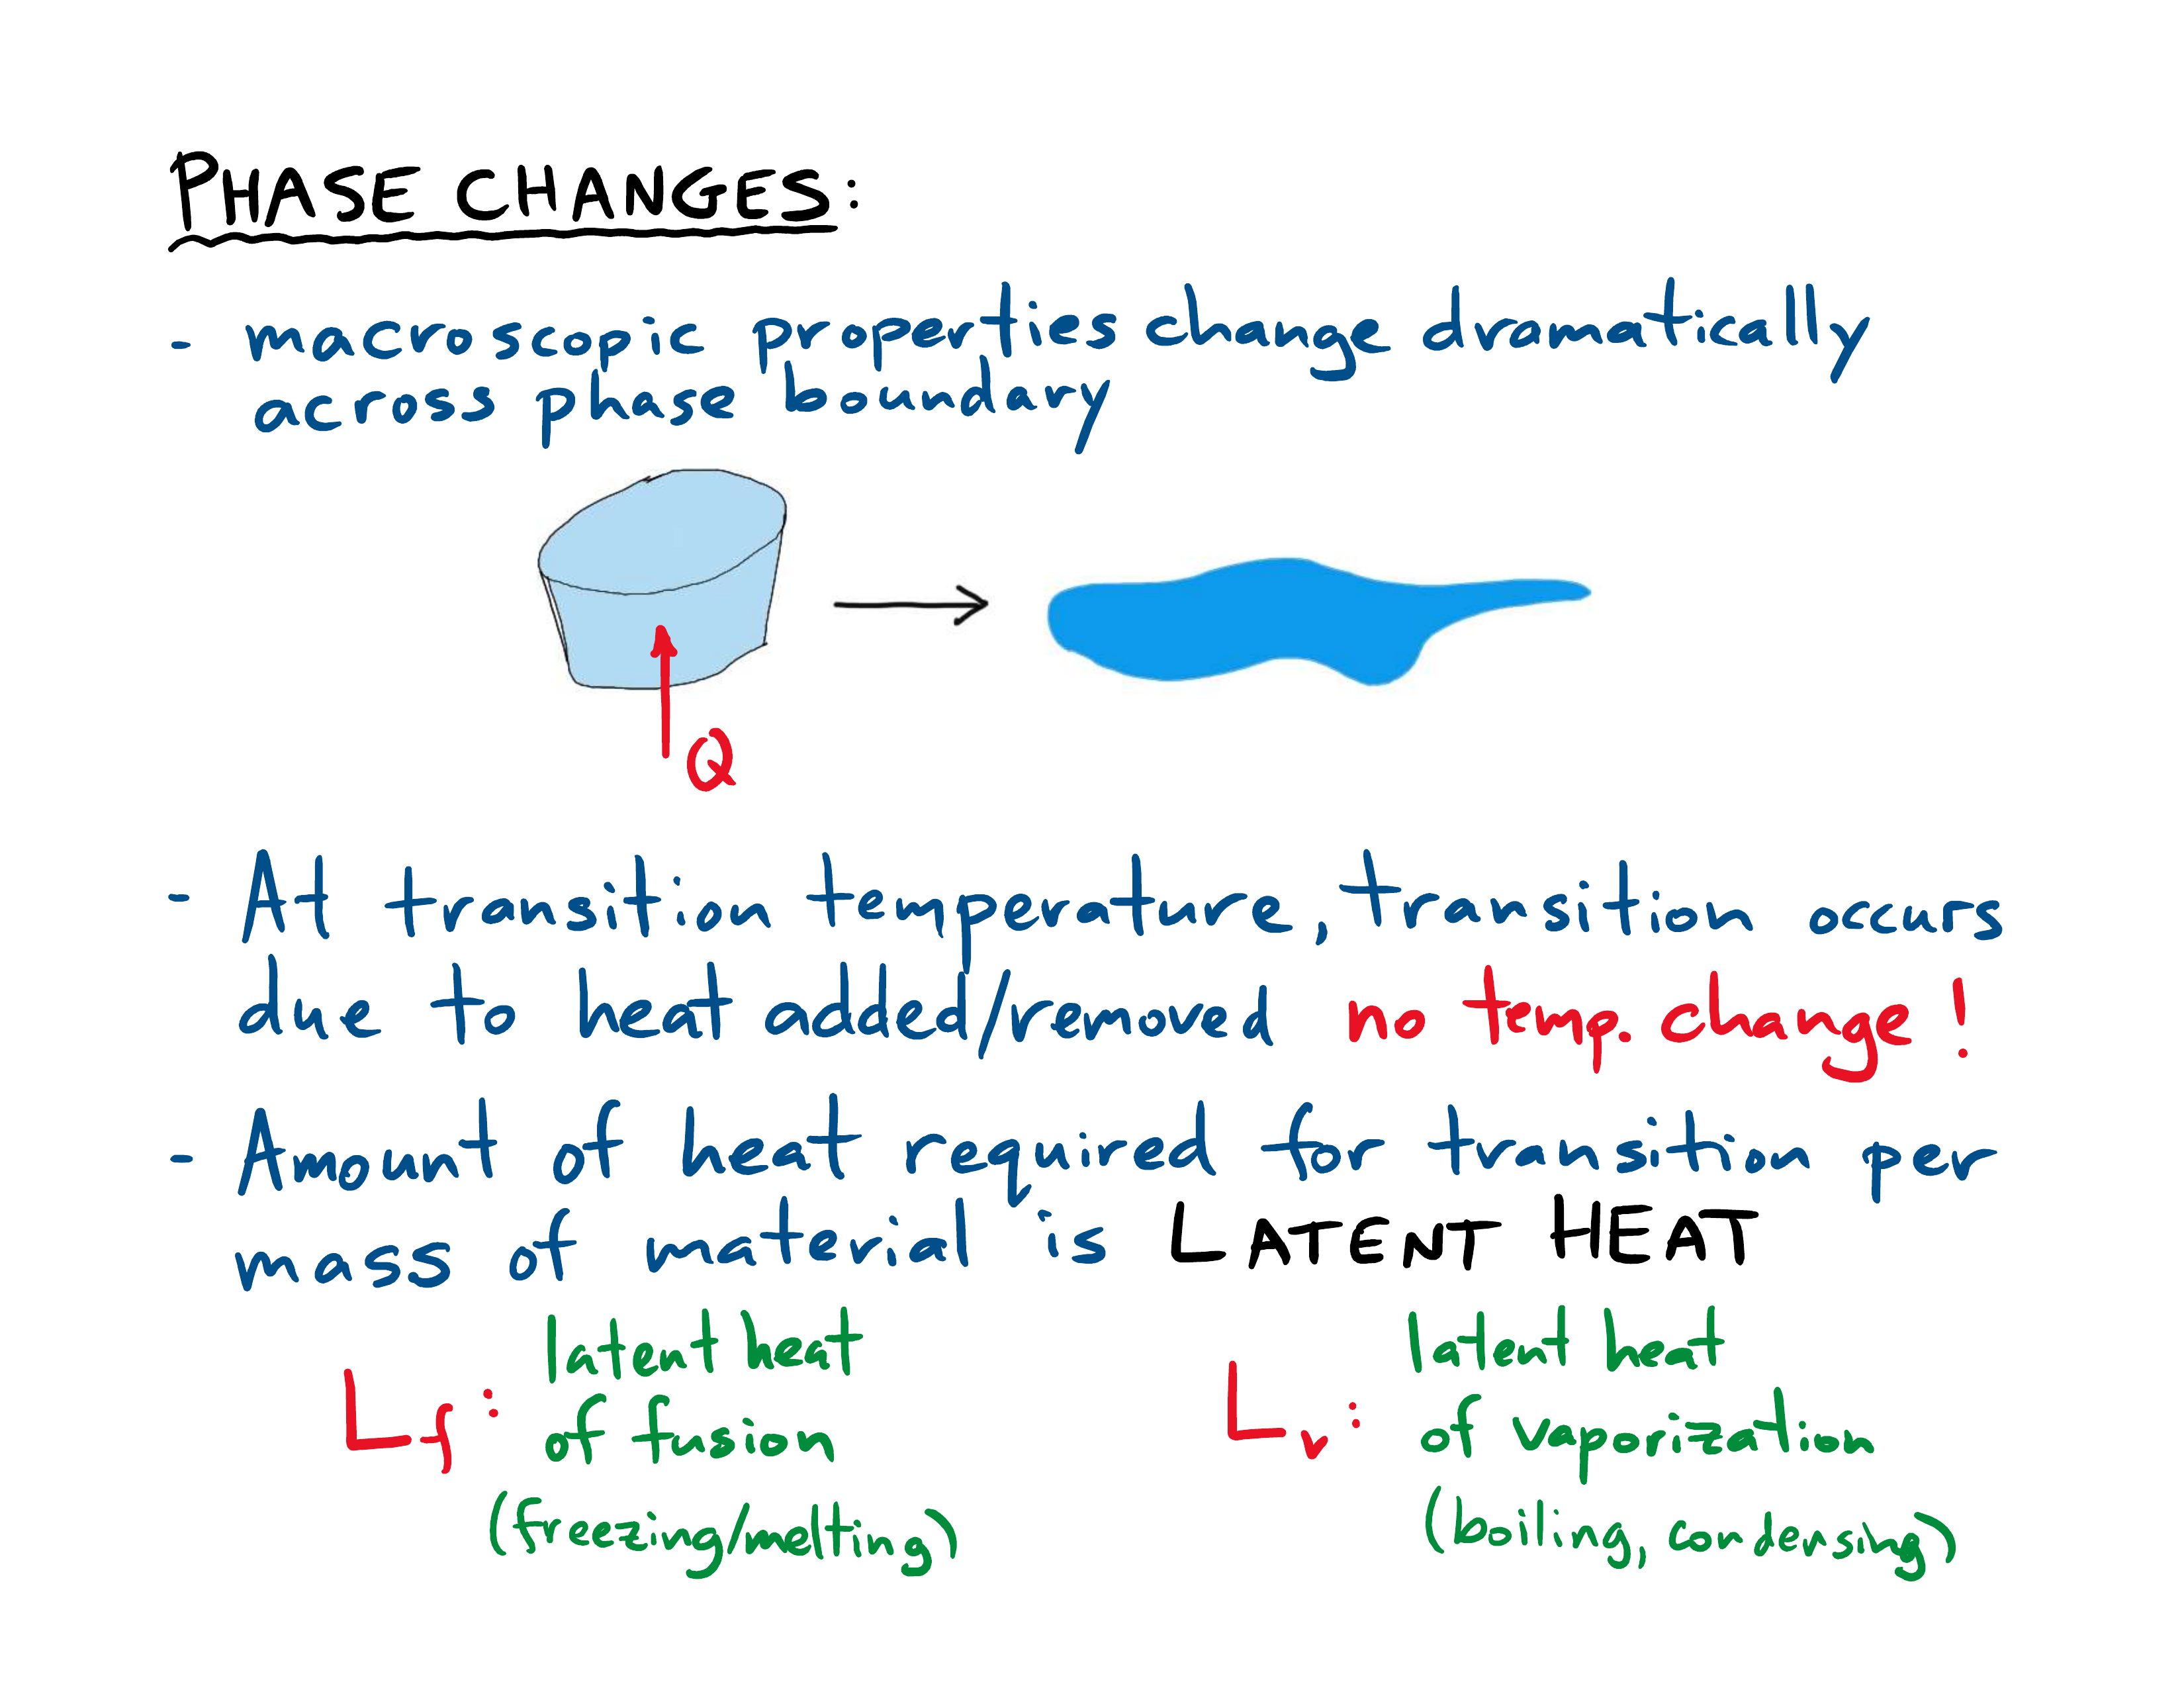 PHASE CHANGES:
- macroscopic properties change dramatically
across phase boundary
Q
- At transition temperature, transition occurs
due to heat added/removed no temp. change!
- Amount of heat required for transition per
mass of material is LATENT HEAT
Lf: latent heat
of fusion
(freezing/melting)
Lv: latent heat
of vaporization
(boiling, condensing)